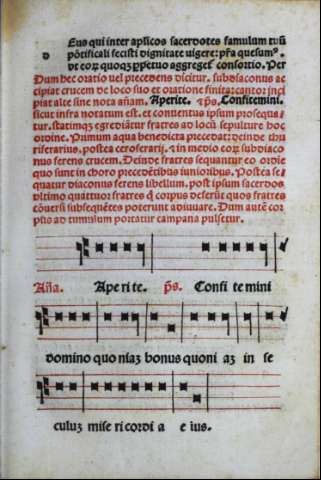 Eus qui inter aplicos sacerdotes famulum tuū
D pōtificali fecisti dignitate vigere: pr̄a quesumꝰ.
vt eoꝝ quoqꝫ ꝑpetuo aggreget̄ consortio. Per
Dum hec oratio vel precedens dicitur. subdiaconus ac
cipiat crucem de loco suo et oratione finita: cantor inci
piat alte sine nota añam. Aperite. ⁊ p̄s. Confitemini.
sicut infra notatum est. et conuentus ipsum prosequa
tur. statimqꝫ egrediātur fratres ad locū sepulture hoc
ordine. Primum aqua benedicta precedat: deinde thu
riferarius. postea ceroferarij. ⁊ in medio eoꝝ subdiaco
nus ferens crucem. Deinde fratres sequantur eo ordīe
quo sunt in choro precedētibus iunioribus. Postea se
quatur diaconus ferens libellum. post ipsum sacerdos
vltimo quattuor fratres q̄ corpus deferūt quos fratres
cōuersi subsequētes poterunt adiuuare. Dum autē cor
pus ad tumulum portatur campana pulsetur.
Aña. Ape ri te. p̄s. Confi te mini
domino quo niaꝫ bonus quoni aꝫ in se
culuꝫ mise ri cordi a e ius.